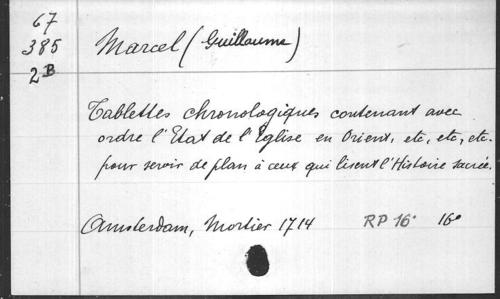 67
385
2B
Marcel (Guillaume)
Tablettes chronologiques contenant avec
ordre l'Etat de l'Eglise en Orient, etc, etc, etc.
pour servir de plan à ceux qui lisent l'Histoire sacrée.
Amsterdam, Mortier 1714 RP 16° 16°